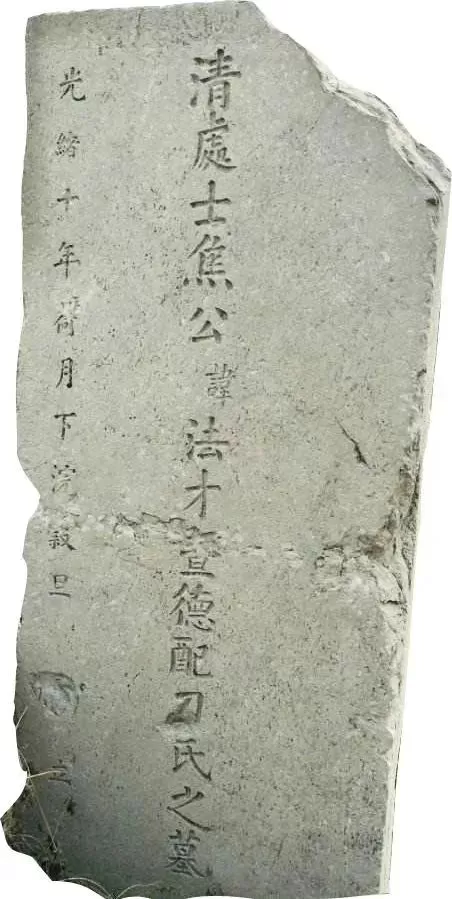 清處士焦公諱法才暨德配刁氏之墓
光緒十年荷月下浣穀旦 立